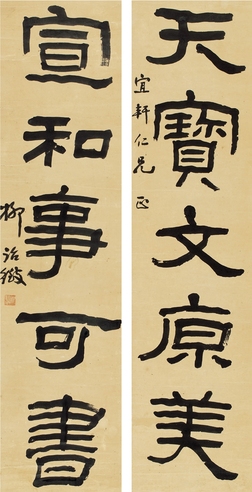 天寶文原美
宜軒仁兄 正
宣和事可書
柳詒徵